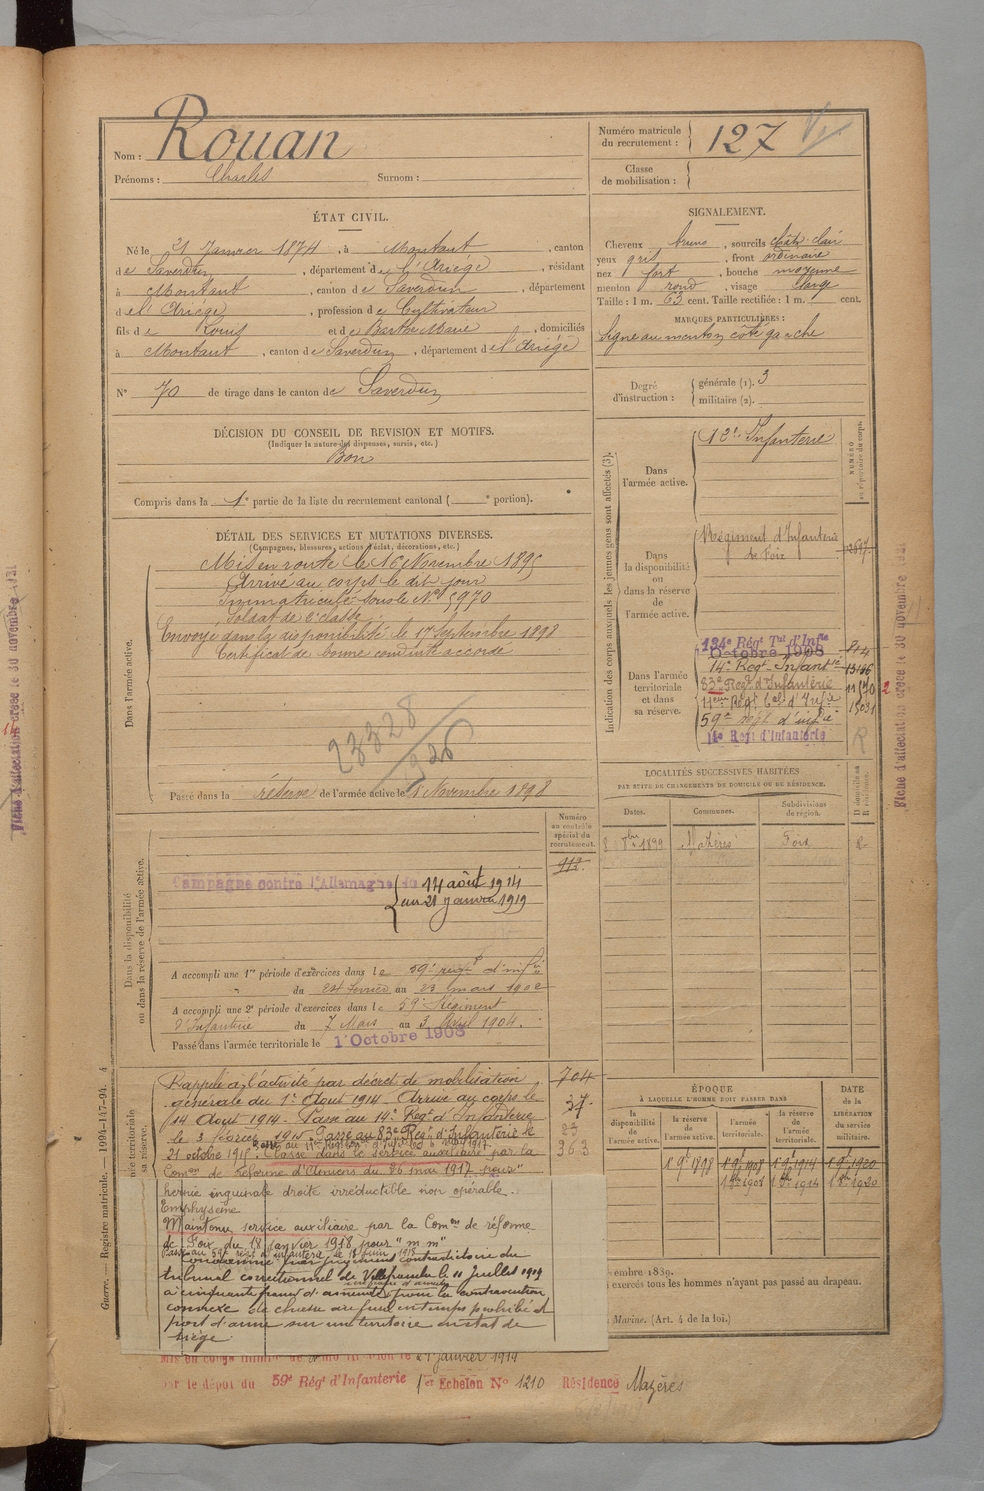 Nom : Rouan
Prénoms : Charles Surnom :
Numéro matricule du recrutement : 127
Classe de mobilisation :
ÉTAT CIVIL.
Né le 21 Janvier 1874, à Montaut, canton
de Saverdun, département de l'Ariège, résidant
à Montaut, canton de Saverdun, département
de l'Ariège, profession de Cultivateur
fils de Louis et de Barthe Marie, domiciliés
à Montaut, canton de Saverdun, département de l'Ariège
N° 70 de tirage dans le canton de Saverdun
SIGNALEMENT.
Cheveux bruns, sourcils chât. clair
yeux gris, front ordinaire
nez fort, bouche moyenne
menton rond, visage large
Taille : 1 m. 63 cent. Taille rectifiée : 1 m. cent.
MARQUES PARTICULIÈRES :
Signe au menton côté gauche
Degré d'instruction : générale (1). 3
militaire (2).
DÉCISION DU CONSEIL DE REVISION ET MOTIFS.
(Indiquer la nature des dispenses, sursis, etc.)
Bon
Compris dans la 1e partie de la liste du recrutement cantonal ( e portion).
DÉTAIL DES SERVICES ET MUTATIONS DIVERSES.
(Campagnes, blessures, actions d'éclat, décorations, etc.)
Dans l'armée active.
Mis en route le 16 Novembre 1895
Arrivé au corps le dit jour
Immatriculé sous le N° 5970
Soldat de 2e classe
Envoyé dans la disponibilité le 17 Septembre 1898
Certificat de bonne conduite accordé
23328
Passé dans la réserve de l'armée active le 1 Novembre 1898
Indication des corps auxquels les jeunes gens sont affectés (3).
NUMÉRO au répertoire du corps.
Dans l'armée active.
12e Infanterie
Dans la disponibilité ou dans la réserve de l'armée active.
Régiment d'Infanterie
de Foix
Dans l'armée territoriale et dans sa réserve.
134e Régt Tal d'Infie
Octobre 1908
14e Regt Infantie
83e Regt d'Infanterie
11eme Régt Cal d'Infie
59e régt d'infie
14e Régt d'Infanterie
Fiche d'affectation créée le 30 novembre 1921
Fiche d'affectation créée le 30 novembre 1921
LOCALITÉS SUCCESSIVES HABITÉES
PAR SUITE DE CHANGEMENTS DE DOMICILE OU DE RÉSIDENCE.
Dates. Communes. Subdivisions de région. D domicile ou R résidence.
8bre 1899 Mazères Foix R
Dans la disponibilité ou dans la réserve de l'armée active.
Numéro au contrôle spécial du recrutement.
112
Campagne contre l'Allemagne du 14 août 1914
au 21 janvier 1919
A accompli une 1re période d'exercices dans le 59e regt d'infie
du 24 février au 23 mars 1902
A accompli une 2e période d'exercices dans le 59e Régiment
d'Infanterie du 7 Mars au 3 Avril 1904.
Passé dans l'armée territoriale le 1 Octobre 1908
Rappelé à l'activité par décret de mobilisation 704
générale du 1er Aout 1914. Arrivé au corps le
14 Aout 1914. Passé au 14e Regt d'Infanterie
le 3 février 1915. Passé au 83e Regt d'Infanterie le
21 octobre 1915. Classé dans le service auxiliaire par la
Comon de réforme d'Amiens du 26 mai 1917 pour"
hernie inguinale droite irréductible non opérable.
Emphysème
Maintenu service auxiliaire par la Comon de réforme
de Foix du 18 janvier 1918 pour "m m"
Passé au 59e régt d'infanterie le 18 juin 1918
Condamné par jugement contradictoire du
tribunal correctionnel de Villefranche le 11 juillet 1919
à cinquante francs d'amende pour la contravention
connexe de chasse au fusil en temps prohibé et
port d'arme sur un territoire en état de
siège.
ÉPOQUE
À LAQUELLE L'HOMME DOIT PASSER DANS
la disponibilité de l'armée active. la réserve de l'armée active. l'armée territoriale. la réserve de l'armée territoriale.
DATE de la LIBÉRATION du service militaire.
1 9bre 1898 1 9bre 1908 1 9bre 1914 1 9bre 1920
1 8bre 1908 1 8bre 1914 1 8bre 1920
vembre 1889.
exercés tous les hommes n'ayant pas passé au drapeau.
Marine. (Art. 4 de la loi.)
21 janvier 1919
par le dépôt du 59e Régt d'Infanterie 1er Echelon N° 1210 Résidence Mazères
Guerre. — Registre matricule. — 1994-147-94. 4